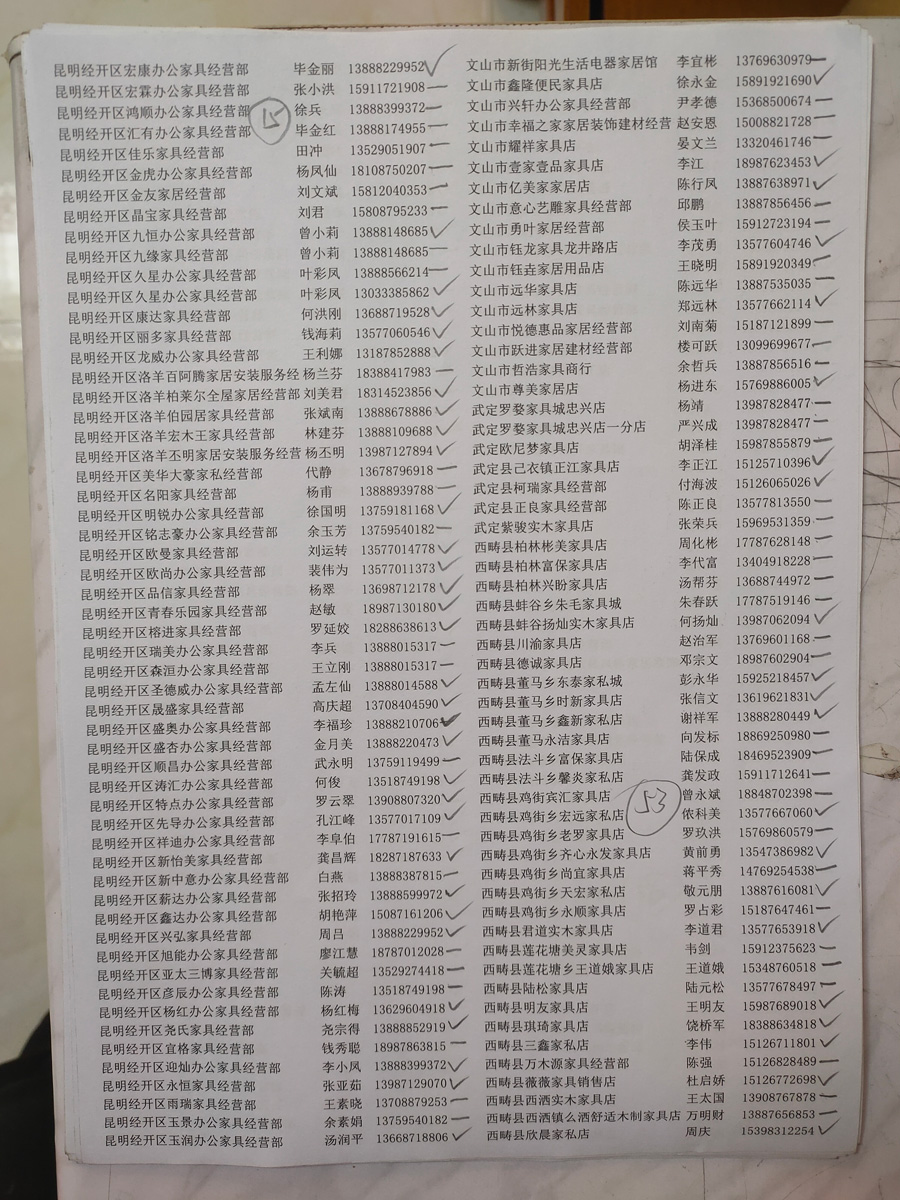 昆明经开区宏康办公家具经营部 毕金丽 13888229952
昆明经开区宏霖办公家具经营部 张小洪 15911721908
昆明经开区鸿顺办公家具经营部 徐兵 13888399372
昆明经开区汇有办公家具经营部 毕金红 13888174955
昆明经开区佳乐家具经营部 田冲 13529051907
昆明经开区金虎办公家具经营部 杨凤仙 18108750207
昆明经开区金友家居经营部 刘文斌 15812040353
昆明经开区晶宝家具经营部 刘君 15808795233
昆明经开区九恒办公家具经营部 曾小莉 13888148685
昆明经开区九缘家具经营部 曾小莉 13888148685
昆明经开区久星办公家具经营部 叶彩凤 13888566214
昆明经开区久星办公家具经营部 叶彩凤 13033385862
昆明经开区康达家具经营部 何洪刚 13688719528
昆明经开区丽多家具经营部 钱海莉 13577060546
昆明经开区龙威办公家具经营部 王利娜 13187852888
昆明经开区洛羊百阿腾家居安装服务经 杨兰芬 18388417983
昆明经开区洛羊柏莱尔全屋家居经营部 刘美君 18314523856
昆明经开区洛羊伯园居家具经营部 张斌南 13888678886
昆明经开区洛羊宏木王家具经营部 林建芬 13888109688
昆明经开区洛羊丕明家居安装服务经营 杨丕明 13987127894
昆明经开区美华大豪家私经营部 代静 13678796918
昆明经开区名阳家具经营部 杨甫 13888939788
昆明经开区明锐办公家具经营部 徐国明 13759181168
昆明经开区铭志豪办公家具经营部 余玉芳 13759540182
昆明经开区欧曼家具经营部 刘运转 13577014778
昆明经开区欧尚办公家具经营部 裴伟为 13577011373
昆明经开区品信家具经营部 杨翠 13698712178
昆明经开区青春乐园家具经营部 赵敏 18987130180
昆明经开区榕进家具经营部 罗延姣 18288638613
昆明经开区瑞美办公家具经营部 李兵 13888015317
昆明经开区森洹办公家具经营部 王立刚 13888015317
昆明经开区圣德威办公家具经营部 孟左仙 13888014588
昆明经开区晟盛家具经营部 高庆超 13708404590
昆明经开区盛奥办公家具经营部 李福珍 13888210706
昆明经开区盛杏办公家具经营部 金月美 13888220473
昆明经开区顺昌办公家具经营部 武永明 13759119499
昆明经开区涛汇办公家具经营部 何俊 13518749198
昆明经开区特点办公家具经营部 罗云翠 13908807320
昆明经开区先导办公家具经营部 孔江峰 13577017109
昆明经开区祥迪办公家具经营部 李阜伯 17787191615
昆明经开区新怡美家具经营部 龚昌辉 18287187633
昆明经开区新中意办公家具经营部 白燕 13888387815
昆明经开区薪达办公家具经营部 张招玲 13888599972
昆明经开区鑫达办公家具经营部 胡艳萍 15087161206
昆明经开区兴弘家具经营部 周吕 13888229952
昆明经开区旭能办公家具经营部 廖江慧 18787012028
昆明经开区亚太三博家具经营部 关毓超 13529274418
昆明经开区彦辰办公家具经营部 陈涛 13518749198
昆明经开区杨红办公家具经营部 杨红梅 13629604918
昆明经开区尧氏家具经营部 尧宗得 13888852919
昆明经开区宜格家具经营部 钱秀聪 18987863815
昆明经开区迎灿办公家具经营部 李小凤 13888399372
昆明经开区永恒家具经营部 张亚茹 13987129070
昆明经开区雨瑞家具经营部 王素晓 13708879253
昆明经开区玉景办公家具经营部 余素娟 13759540182
昆明经开区玉润办公家具经营部 汤润平 13668718806
15
文山市新街阳光生活电器家居馆 李宜彬 13769630979
文山市鑫隆便民家具店 徐永金 15891921690
文山市兴轩办公家具经营部 尹孝德 15368500674
文山市幸福之家家居装饰建材经营 赵安恩 15008821728
文山市耀祥家具店 晏文兰 13320461746
文山市壹家壹品家具店 李江 18987623453
文山市亿美家家居店 陈行凤 13887638971
文山市意心艺雕家具经营部 邱鹏 13887856456
文山市勇叶家居经营部 侯玉叶 15912723194
文山市钰龙家具龙井路店 李茂勇 13577604746
文山市钰垚家居用品店 王晓明 15891920349
文山市远华家具店 陈远华 13887535035
文山市远林家具店 郑远林 13577662114
文山市悦德惠品家居经营部 刘南菊 15187121899
文山市跃进家居建材经营部 楼可跃 13099699677
文山市哲浩家具商行 余哲兵 13887856516
文山市尊美家居店 杨进东 15769886005
武定罗婺家具城忠兴店 杨靖 13987828477
武定罗婺家具城忠兴店一分店 严兴成 13987828477
武定欧尼梦家具店 胡泽桂 15987855879
武定县己衣镇正江家具店 李正江 15125710396
武定县柯瑞家具经营部 付海波 15126065026
武定县正良家具经营部 陈正良 13577813550
武定紫骏实木家具店 张荣兵 15969531359
西畴县柏林彬美家具店 周化彬 17787628148
西畴县柏林富保家具店 李代富 13404918228
西畴县柏林兴盼家具店 汤帮芬 13688744972
西畴县蚌谷乡朱毛家具城 朱春跃 17787519146
西畴县蚌谷扬灿实木家具店 何扬灿 13987062094
西畴县川渝家具店 赵冶军 13769601168
西畴县德诚家具店 邓宗文 18987602904
西畴县董马乡东泰家私城 彭永华 15925218457
西畴县董马乡时新家具店 张信文 13619621831
西畴县董马乡鑫新家私店 谢祥军 13888280449
西畴县董马永洁家具店 向发标 18869250980
西畴县法斗乡富保家具店 陆保成 18469523909
西畴县法斗乡馨炎家私店 龚发政 15911712641
西畴县鸡街宾汇家具店 曾永斌 18848702398
西畴县鸡街乡宏远家私店 侬科美 13577667060
西畴县鸡街乡老罗家具店 罗玖洪 15769860579
西畴县鸡街乡齐心永发家具店 黄前勇 13547386982
西畴县鸡街乡尚宜家具店 蒋平秀 14769254538
西畴县鸡街乡天宏家私店 敬元朋 13887616081
西畴县鸡街乡永顺家具店 罗占彩 15187647461
西畴县君道实木家具店 李道君 13577653918
西畴县莲花塘美灵家具店 韦剑 15912375623
西畴县莲花塘乡王道娥家具店 王道娥 15348760518
西畴县陆松家具店 陆元松 13577678497
西畴县明友家具店 王明友 15987689018
西畴县琪琦家具店 饶桥军 18388634818
西畴县三鑫家私店 李伟 15126711801
西畴县万木源家具经营部 陈强 15126828489
西畴县薇薇家具销售店 杜启娇 15126772698
西畴县西洒实木家具店 王太国 13908767878
西畴县西洒镇么洒舒适木制家具店 万明财 13887656853
西畴县欣晨家私店 周庆 15398312254
53